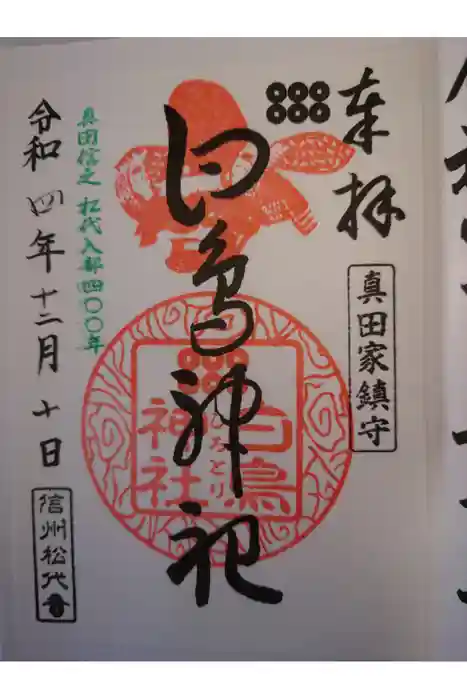 奉拝
真田家鎮守
白鳥神社
白鳥
しろとり
神社
真田信之 松代入部四〇〇年
令和四年十二月十日
信州松代